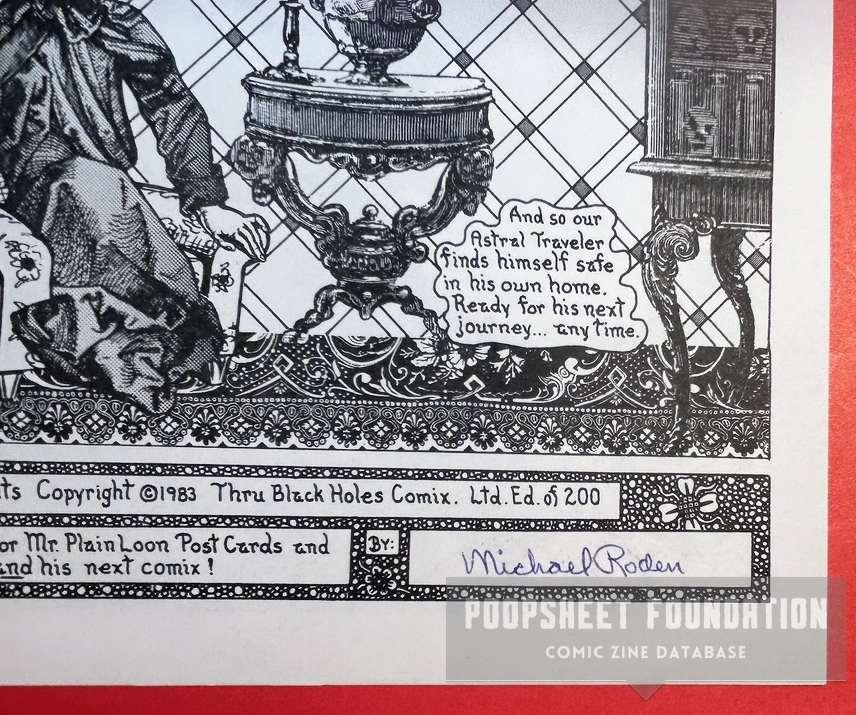 And so our
Astral Traveler
finds himself safe
in his own home.
Ready for his next
journey... any time.
ts Copyright ©1983 Thru Black Holes Comix. Ltd. Ed. of 200
or Mr. Plain Loon Post Cards and
and his next comix!
BY:
Michael Roden
POOPSHEET FOUNDATION
COMIC ZINE DATABASE